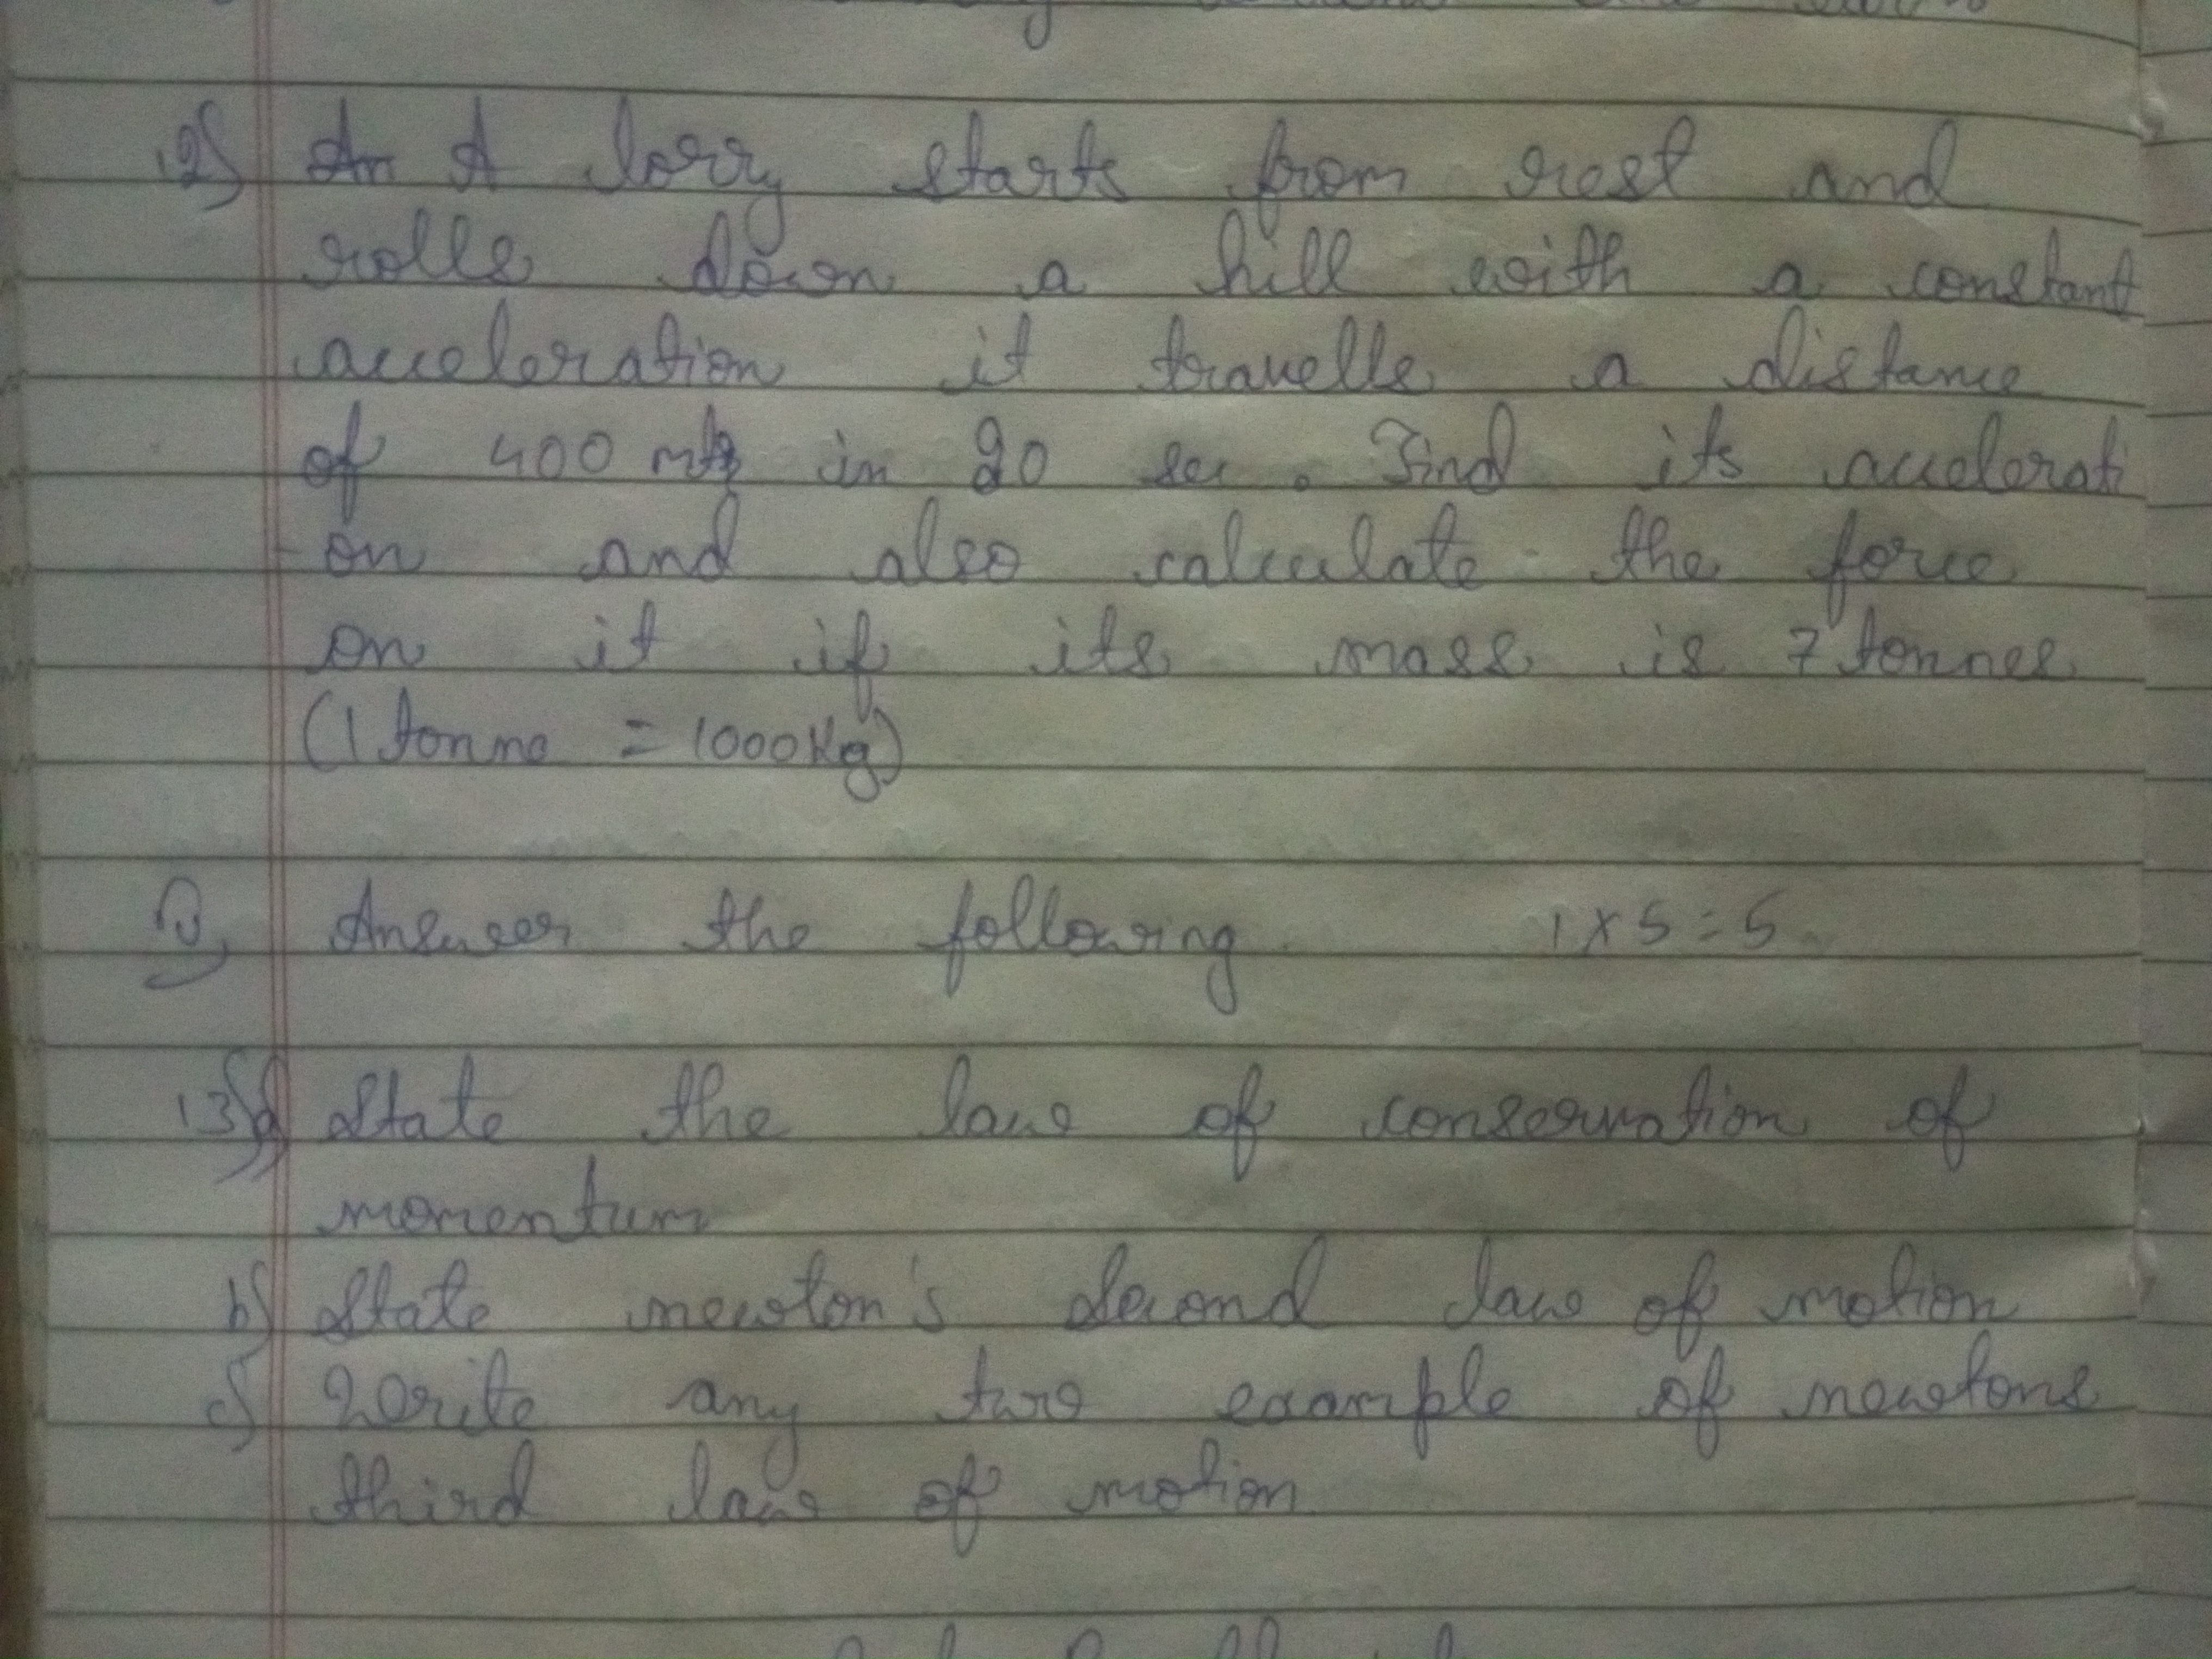 12) A lorry starts from rest and
rolls down a hill with a constant
acceleration it travells a distance
of 400 mts in 20 sec. Find its accelerati
on and also calculate the force
on it if its mass is 7 tonnes
(1 tonne = 1000Kg)
Answer the following 1 x 5 = 5
13) a) State the law of conservation of
momentum
b) State newton's second law of motion
c) Write any two example of newtons
third law of motion